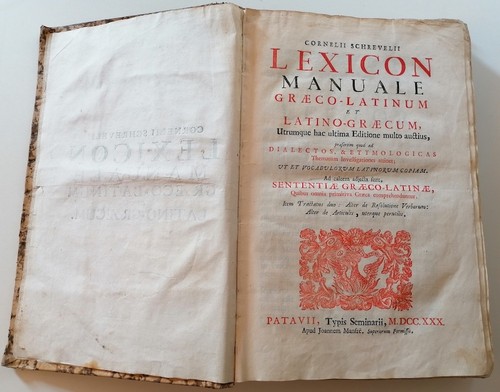 CORNELII SCHREVELII
LEXICON
MANUALE
GRÆCO-LATINUM
ET
LATINO-GRÆCUM,
Utrumque hac ultima Editione multo auctius,
præsertim quod ad
DIALECTOS, & ETYMOLOGICAS
Thematum investigationes attinet:
UT ET VOCABULORUM LATINORUM COPIAM.
Ad calcem adjectæ sunt,
SENTENTIÆ GRÆCO-LATINÆ,
Quibus omnia primitiva Græca comprehenduntur.
Item Tractatus duo: Alter de Resolutione Verborum:
Alter de Articulis, uterque perutilis.
PATAVII, Typis Seminarii, M.DCC.XXX.
Apud Joannem Manfrè. Superiorum Permissu.